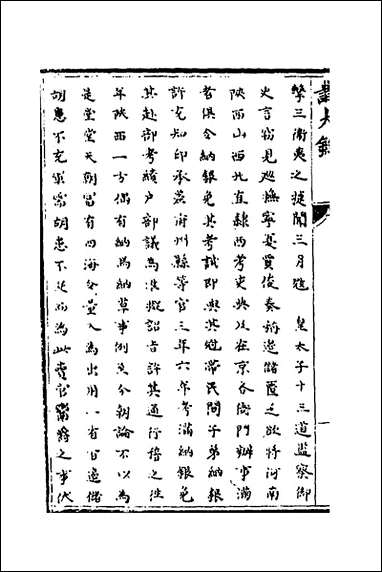 擊三衛夷之捷閏三月造 皇太子十三道監察御
史言竊見巡撫寧夏賈俊奏稱邊儲匱乏欲將河南
陝西山西北直隸西考吏典及在京各衙門辦事滿
者俱令納銀免其考試即與其冠帶民間子弟納銀
許充知印承差府州縣等官三年六年考滿納銀免
其赴部考績户部議為沒擬詔旨許其通行稽之往
年陝西一方偶有納馬納草事例至今朝論不以為
是堂堂天朝富有四海今量入為出用一有百邊儲
胡患不充軍需胡患不足而為此賣官鬻爵之事伏